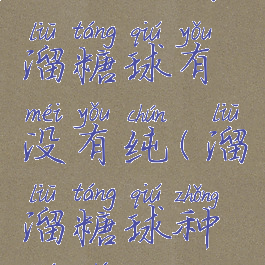 liū táng qiú yǒu
溜糖球有
méi yǒu chún liū
没有纯(溜
liū táng qiú zhǒng
溜糖球种